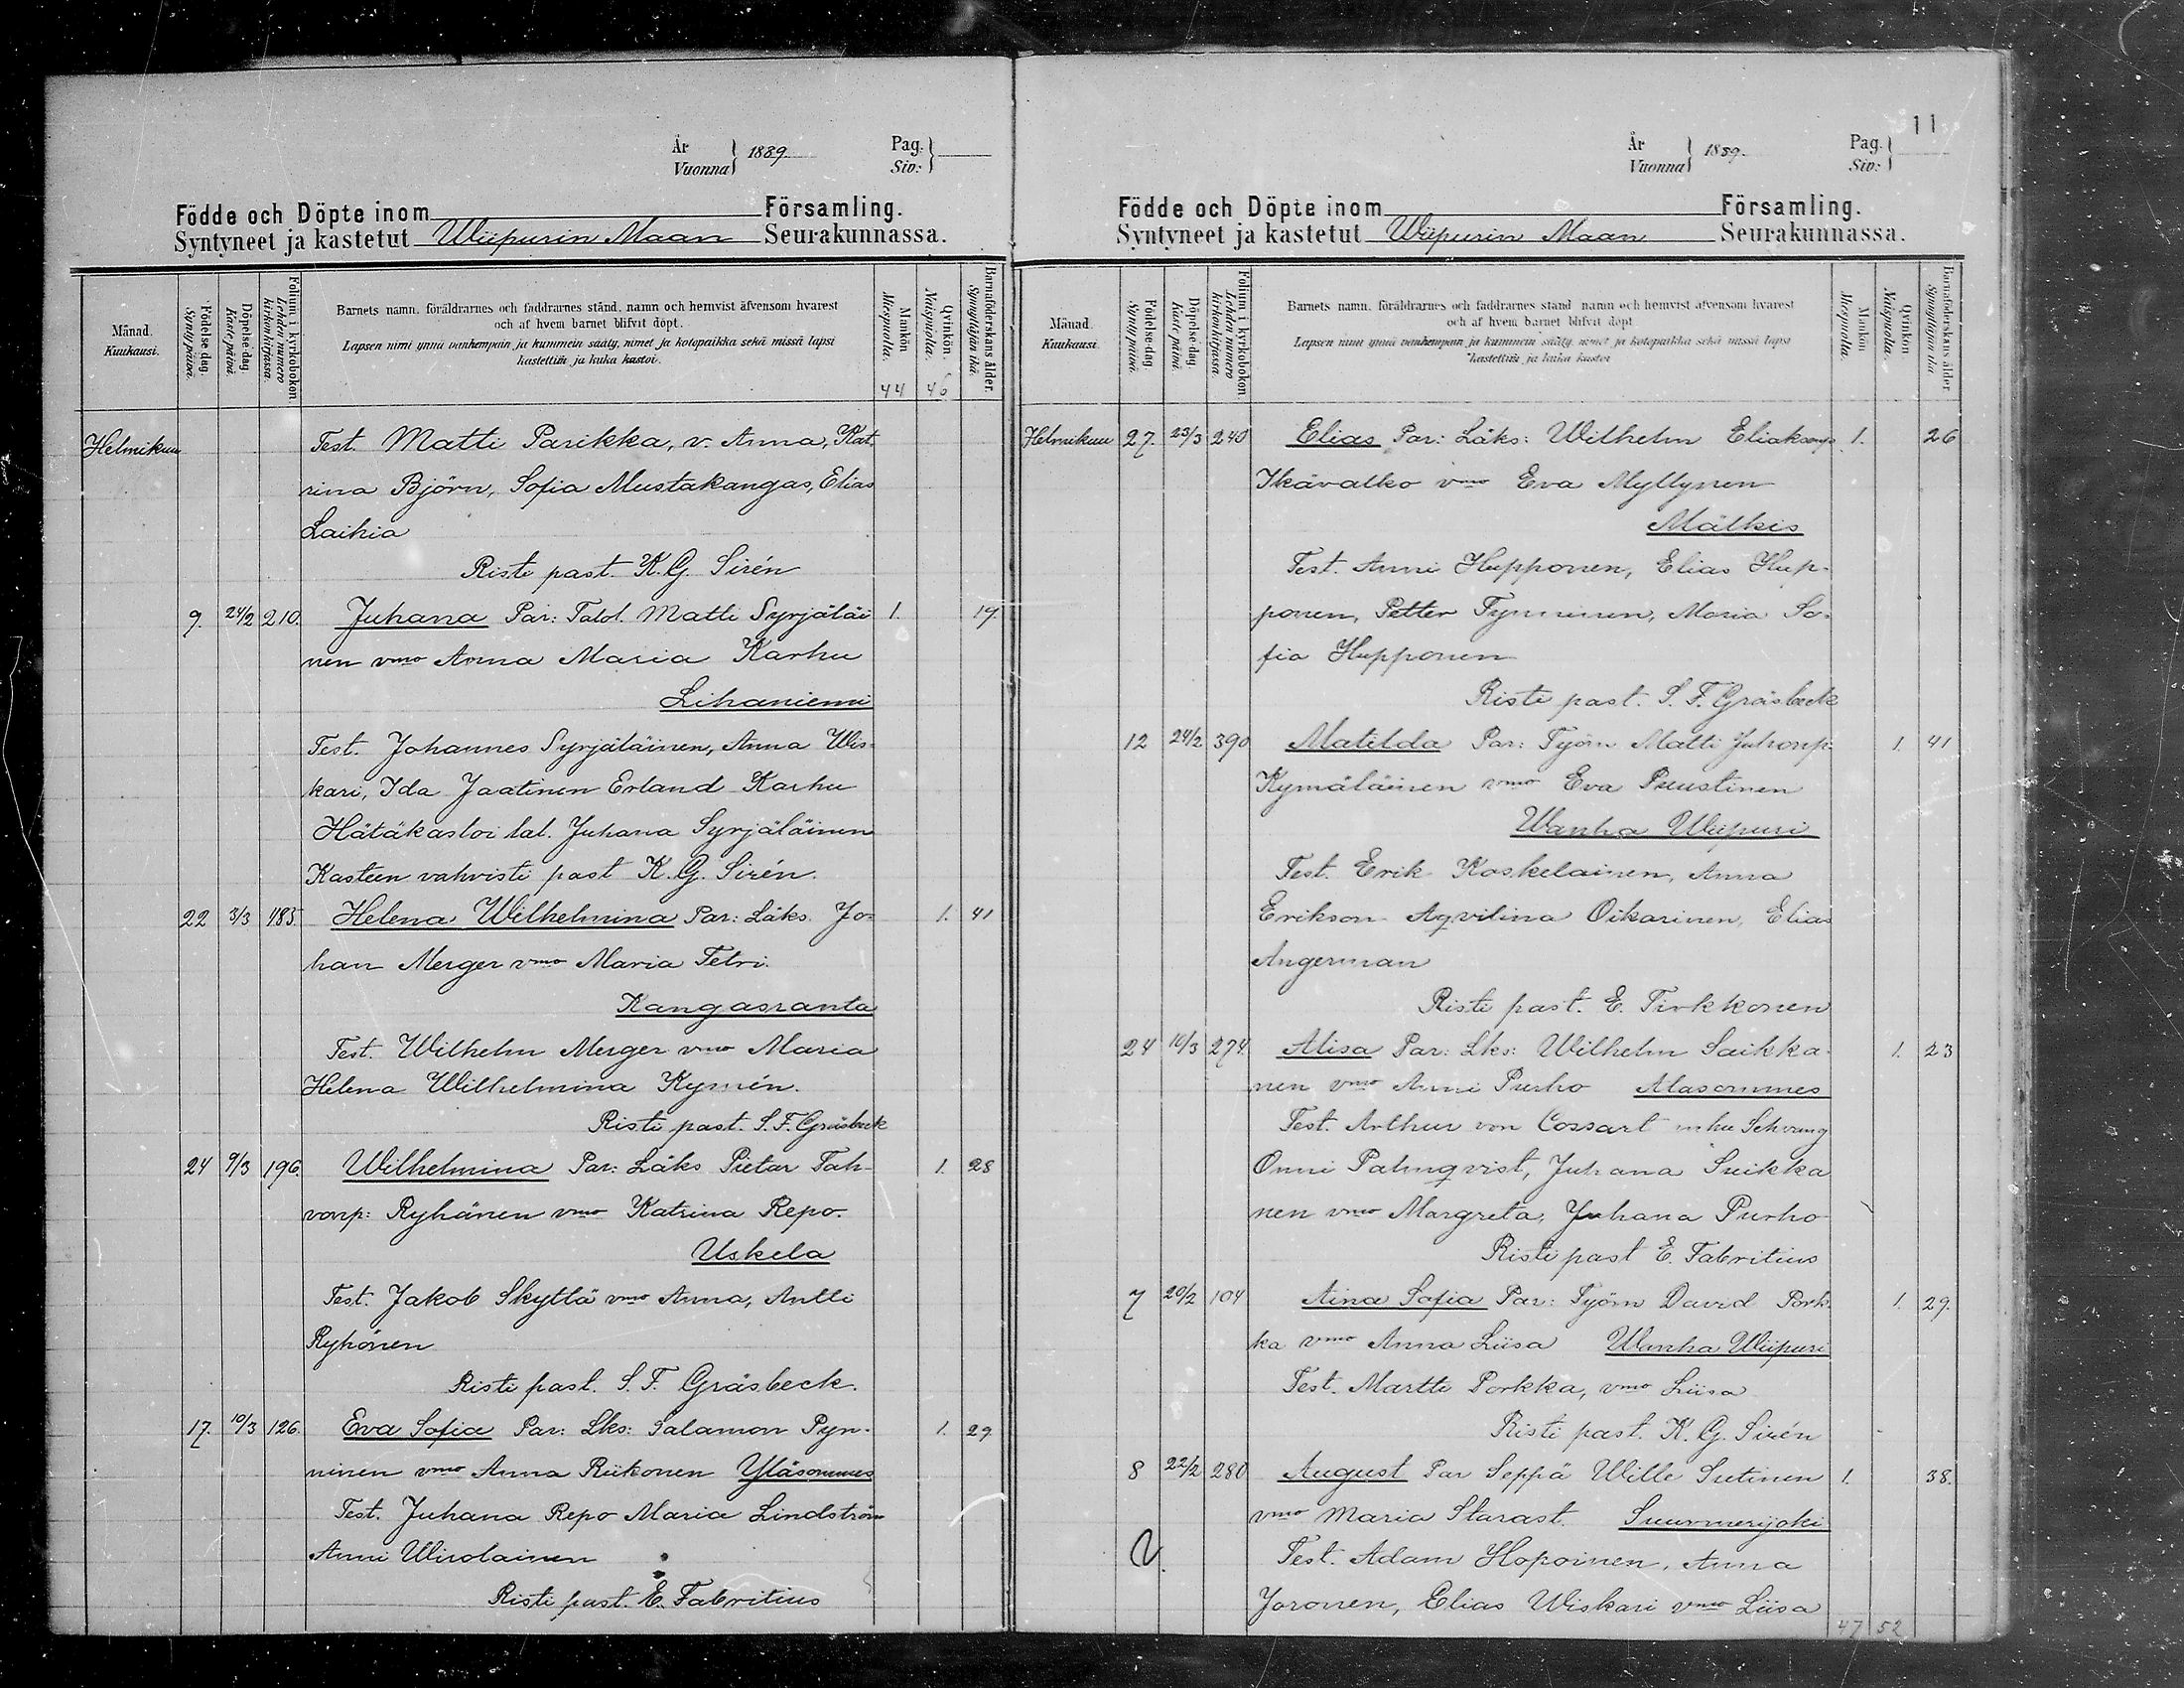 År
Vuonna
1889.
Pag.
Siv:
Födde och Döpte inom Församling.
Syntyneet ja kastetut Wiipurin Maan Seurakunnassa.
Månad.
Kuukausi.
Födelse dag.
Synty päivä.
Döpelse dag.
Kaste-päivä.
Folium i kyrkobokon.
Lehden numero kirkonkirjassa.
Barnets namn, föräldrarnes och faddrarnes stånd, namn och hemvist äfvensom hvarest
och af hvem barnet blifvit döpt.
Lapsen nimi ynnä vanhempain ja kummein sääty, nimet ja kotopaikka sekä missä lapsi
kastettiin ja kuka kastoi.
Mankön
Miespuolia.
44
Qvinkön.
Naispuolia.
46
Barnaföderskans ålder.
Synnyttäjän ikä.
Helmikuu Test. Matti Parikka, v. Anna, Kat-
rina Björn, Sofia Mustakangas, Elias
Laihia
Risti past. K. G. Sirén
9. 24/2 210. Juhana Par: Talol. Matti Syrjäläi 1. 19.
nen vmo Anna Maria Karhu
Lihaniemi
Test. Johannes Syrjäläinen, Anna Wis-
kari, Ida Jaatinen Erland Karhu
Hätäkastoi tal. Juhana Syrjäläinen
Kasteen vahvisti past K. G. Sirén.
22 3/3 185. Helena Wilhelmina Par: Läks. Jo- 1. 41
han Merger vmo Maria Tetri.
Kangasranta
Test. Wilhelm Merger vmo Maria
Helena Wilhelmina Kymén.
Risti past. S. F. Gräsbeck
24 9/3 196. Wilhelmina Par: Läks Pietar Tah- 1. 28
vonp: Ryhänen vmo Katrina Repo.
Uskela
Test. Jakob Skyttä vmo Anna, Antti
Ryhönen
Risti past. S. F. Gräsbeck.
17. 10/3 126. Eva Sofia Par: Lks: Salamon Pyn- 1. 29
ninen vmo Anna Riikonen Yläsommes
Test. Juhana Repo Maria Lindström
Anni Wirolainen
Risti past. E. Fabritius
11
År
Vuonna
1889.
Pag.
Siv:
Födde och Döpte inom Församling.
Syntyneet ja kastetut Wiipurin Maan Seurakunnassa.
Månad.
Kuukausi.
Födelse-dag
Synty päivä.
Döpelse-dag
Kaste-päivä.
Folium i kyrkobokon.
Lehden numero kirkonkirjassa.
Barnets namn, föräldrarnes och faddrarnes stånd namn och hemvist äfvensom hvarest
och af hvem barnet blifvit döpt.
Lapsen nimi ynnä vanhempain ja kummein sääty, nimet ja kotopaikka sekä missä lapsi
kastettiin ja kuka kastoi
Mankön
Miespuolia.
Qvinkön
Naispuolia.
Barnaföderskans ålder.
Synnyttäjän ikä
Helmikuu 27. 23/3 240 Elias Par: Läks: Wilhelm Eliaksenp. 1. 26
Ikävalko vmo Eva Myllynen
Mälkis
Test. Anni Hupponen, Elias Hup-
ponen, Petter Tynninen, Maria So-
fia Hupponen
Risti past. S. F. Gräsbeck
12 24/2 390 Matilda Par: Työm Matti Juhonp: 1. 41
Kymäläinen vmo Eva Puustinen
Wanha Wiipuri
Test. Erik Koskelainen, Anna
Erikson Aqvilina Oikarinen, Elias
Angerman
Risti past. E. Tirkkonen
24 10/3 274. Alisa Par: Lks: Wilhelm Saikka- 1. 23
nen vmo Anni Purho Alasommes
Test. Arthur von Cossart Schvung
Onni Palmqvist, Juhana Suikka
nen vmo Margreta, Juhana Purho
Risti past E. Fabritius
7 20/2 104 Aina Sofia Par: Työm David Pork- 1. 29.
ka vmo Anna Liisa Wanha Wiipuri
Test. Martti Porkka, vmo Liisa
Risti past. K. G. Sirén
8 22/2 280 August Par Seppä Wille Sutinen 1. 38.
vmo Maria Starast. Suurmerijoki
Test. Adam Hopoinen, Anna
Joronen, Elias Wiskari vmo Liisa
47 52